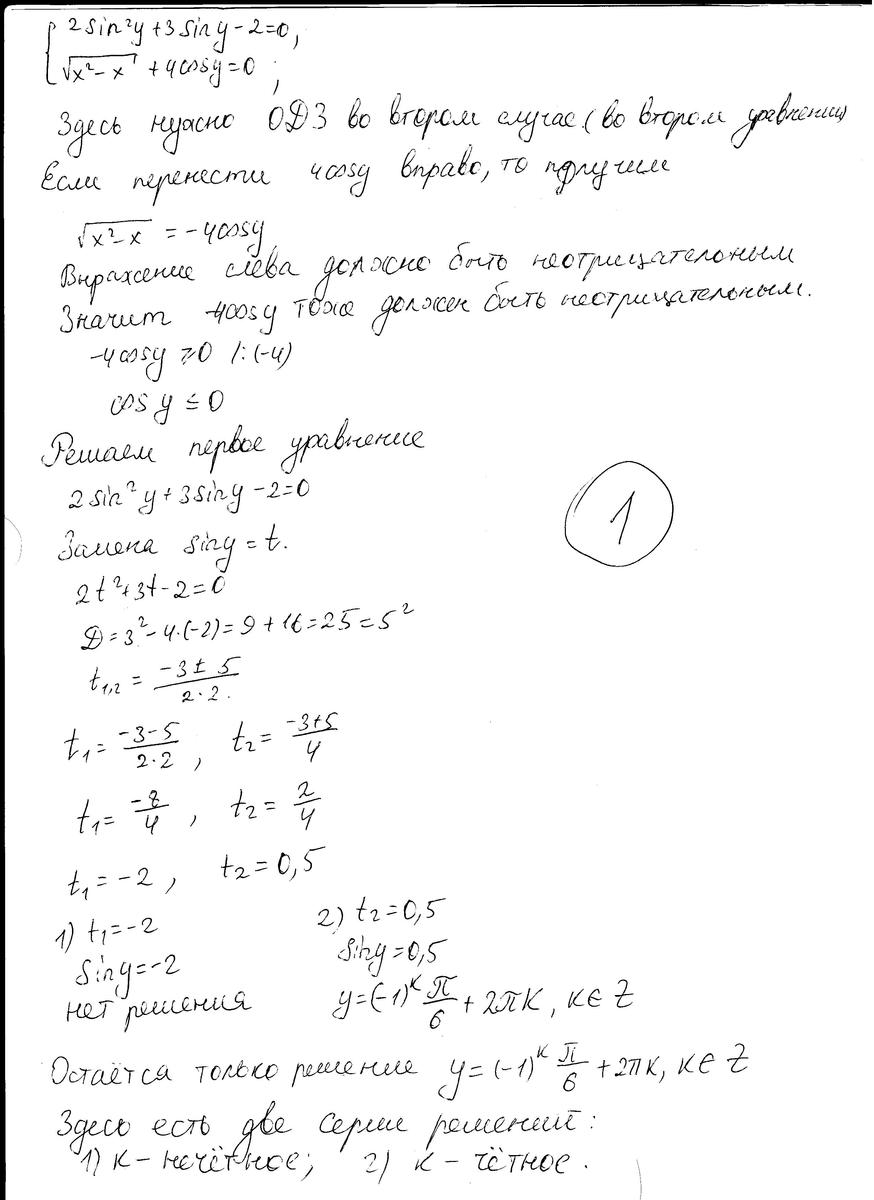 { 2sin²y+3siny-2=0,
√(x²-x) + 4cosy=0 ;
Здесь нужно ОДЗ во втором случае.(во втором уравнении)
Если перенести 4cosy вправо, то получим
√(x²-x) = -4cosy
Выражение слева должно быть неотрицательным
Значит -4cosy тоже должен быть неотрицательным.
-4cosy ≥0 /:(-4)
cos y ≤ 0
Решаем первое уравнение
2sin²y+3siny-2=0
Замена siny=t.
2t²+3t-2=0
D=3²-4·(-2)=9+16=25=5²
t₁,₂ = (-3±5)/(2·2).
t₁= (-3-5)/(2·2) , t₂= (-3+5)/4
t₁= -8/4 , t₂= 2/4
t₁=-2 , t₂=0,5
1) t₁=-2 2) t₂=0,5
siny=-2 siny=0,5
нет решения y=(-1)ᵏ π/6 + 2πk, k∈Z
Остаётся только решение y=(-1)ᵏ π/6 +2πk, k∈Z
Здесь есть две серии решений:
1) k-нечётное; 2) k-чётное.
1